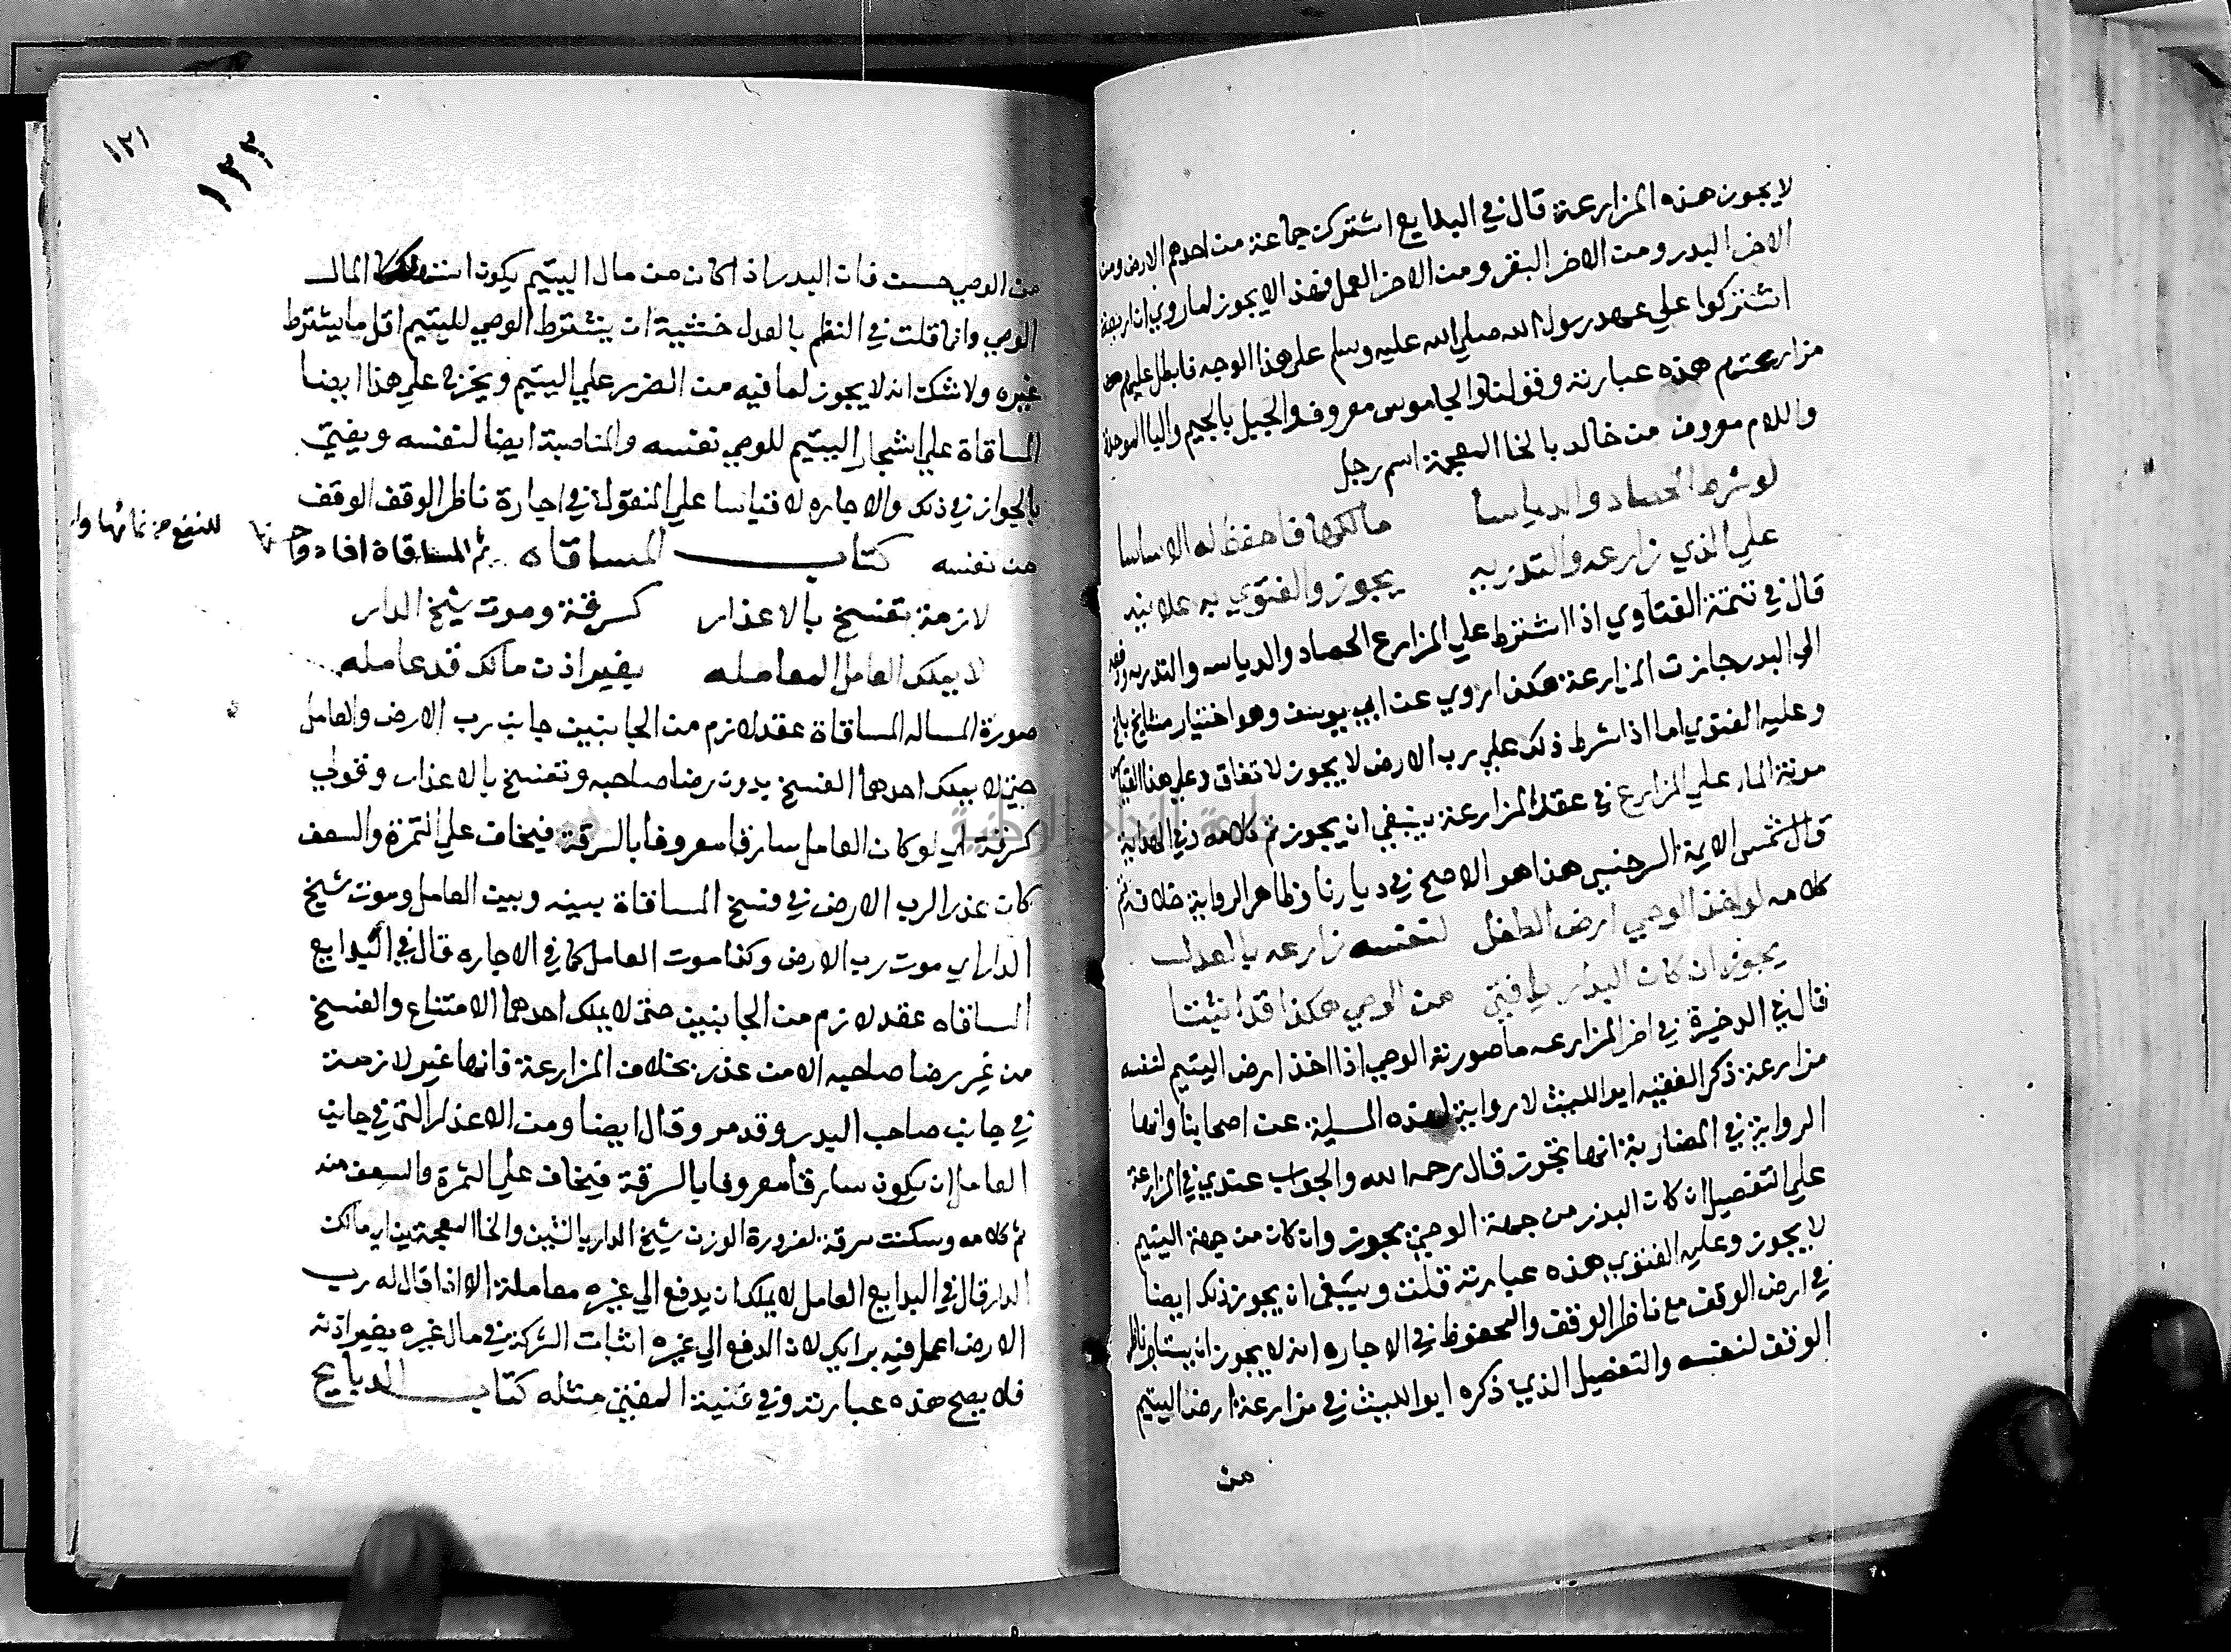 لا يجوز هذه المزارعة قال في البدايع اشترك جماعة من احدهم الارض ومن
الاخر البدر ومن الاخر البقر ومن الاخر العمل فهذا لا يجوز لما روي ان اربعة
اشتركوا علي عهد رسول الله صلي الله عليه وسلم علي هذا الوجه فابطل عليهم
مزارعتهم هذه عبارته وقولنا والجاموس معروف والجبل بالجيم والبا الموحدة
واللام معروف من خالد بالخا المعجمة اسم رجل
لو شرط الحصاد والدياسا مالكها فاحفظ له الاساسا
علي الذي زارعه والتدريه يجوز والفتوي به علانيه
قال في تتمة الفتاوي اذا اشترط علي المزارع الحصاد والدياسه والتدريه
الي البدر جازت المزارعة هكذا روي عن ابي يوسف وهو اختيار مشايخ بلخ
وعليه الفتوي اما اذا شرط ذلك علي رب الارض لا يجوز لاتفاق وعلي هذا القياس
مونة علي المزارع في عقد المزارعة ينبغي ان يجوز تم كلامه وفي الهداية
قال شمس الايمة السرخسي هذا هو الاصح في ديارنا وظاهر الرواية خلافه تم
كلامه لو اخذ الوصي ارض الطفل لنفسه زارعه بالعدل
يجوز ان كان البدار يا فتي من الوصي هكذا قد اثبتا
قال في الدخيرة في اخر المزارعه ما صورته الوصي اذا اخذ ارض اليتيم لنفسه
مزارعة ذكر الفقيه ابو الليث لا رواية لهذه المسيلة عن اصحابنا وانما
الرواية في المضاربة انها تجوز قال رحمه الله والجواب عندي في المزارعة
علي التفصيل ان كان البذر من جهة الوصي يجوز وان كان من جهة اليتيم
لا يجوز وعليه الفتوي هذه عبارته قلت وينبغي ان يجوز ذلك ايضا
في ارض الوقف مع ناظر الوقف والمحفوظ في الاجاره انه لا يجوز ان يستاجر ناظر
الوقف لنفسه والتفصيل الذي ذكره ابو الليث في مزارعة ارض اليتيم
من
١٢١
١٢٣
من الوصي حسن فان البدر اذا كان من مال اليتيم يكون المال
الوصي وانما قلت في النظم بالعدل خشية ان يشترط الوصي لليتيم اقل ما يشترط
غيره ولا شك انه لا يجوز لما فيه من الضرر علي اليتيم ويخرج علي هذا ايضا
المساقاة علي اشجار اليتيم للوصي نفسه والمناصبة ايضا لنفسه ويفتي
بالجواز في ذلك والاجاره لا قياسا علي المنقول في اجارة ناظر الوقف الوقف
من نفسه كتاب المساقاه ثم المساقاة
لازمة تفسخ بالاعذار كسرقة وموت شيخ الدار
لا يملك العامل المعامله بغير اذن مالك قد عامله
صورة المساله المساقاة عقد لازم من الجانبين جانب رب الارض والعامل
حتي لا يملك احدهما الفسخ بدون رضا صاحبه وتفسخ بالاعذار وقولي
كسرقة اي لو كان العامل سارقا معروفا بالسرقة فيخاف علي التمرة والسعف
كان عذرا لرب الارض في فسخ المساقاة بينه وبين العامل وموت شيخ
الدار اي موت رب الارض وكذا موت العامل كما في الاجاره قال في البدايع
المساقاه عقد لازم من الجانبين حتي لا يملك احدهما الامتناع والفسخ
من غير رضا صاحبه الا من عذر بخلاف المزارعة فانها غير لازمة
في جانب صاحب البدر وقد مر وقال ايضا ومن الاعذار التي في جانب
العامل ان يكون سارقا معروفا بالسرقة فيخاف علي التمرة والسعف منه
تم كلامه وسكنت سرقة لضرورة الوزن شيخ الدار بالشين والخا المعجمتين اي مالك
الدار قال في البدايع العامل لا يملك ان يدفع الي غيره معاملة الا اذا قال له رب
الارض اعمل فيه برايك لان الدفع الي غيره اثبات الشركة في مال غيره بغير اذنه
فلا يصح هذه عبارته وفي غنية المفتي مثله كتاب الدبايح